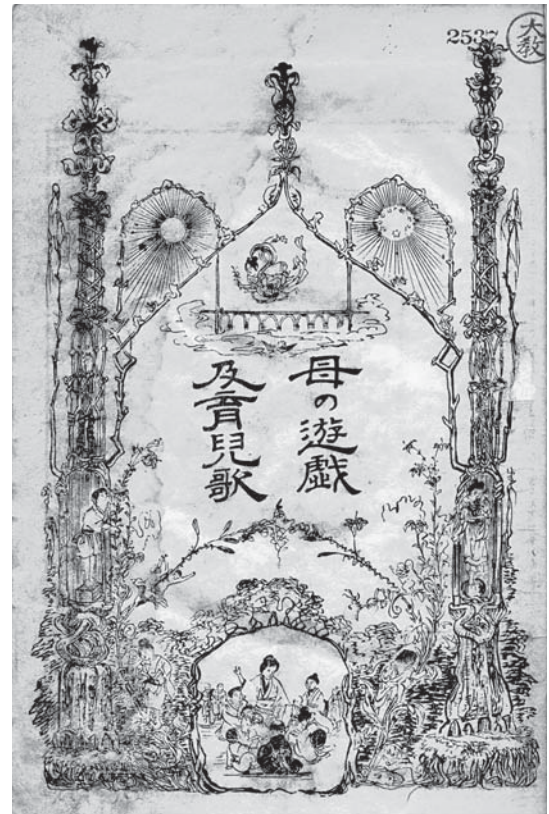 2537
大教
母の遊戯
及育兒歌